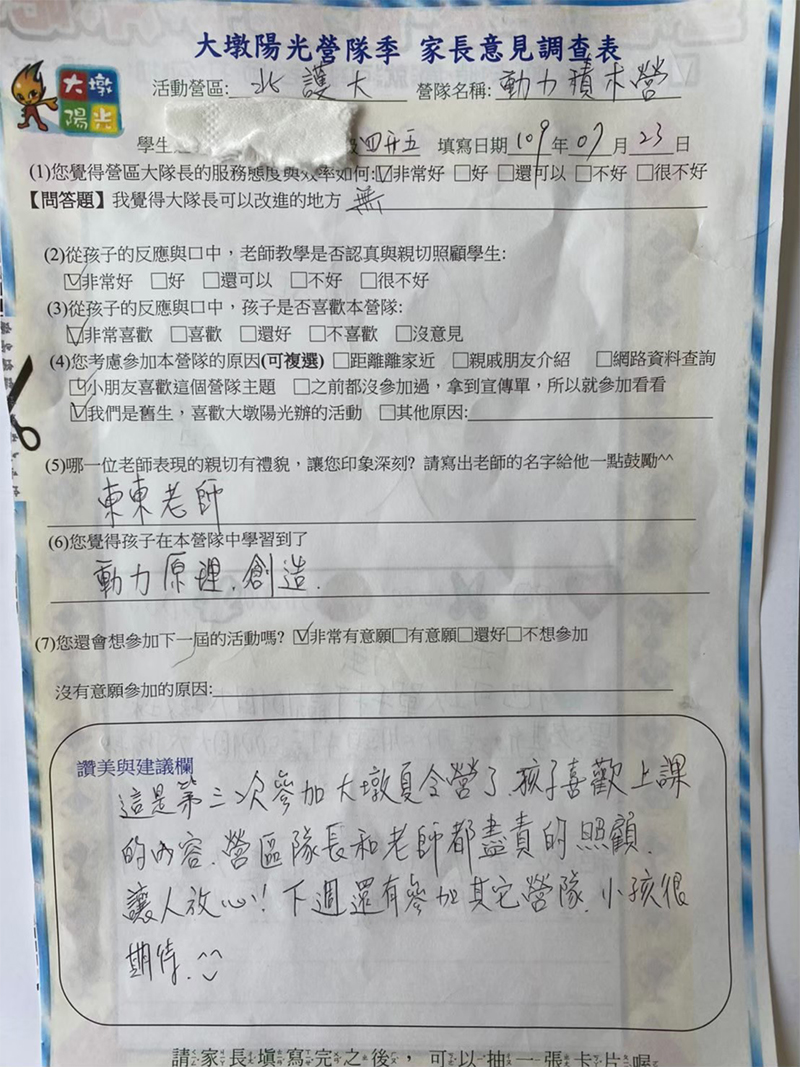 大墩陽光營隊季 家長意見調查表
大墩
陽光
活動營區:北護大 營隊名稱:動力積木營
學生 四升五 填寫日期109年07月23日
(1)您覺得營區大隊長的服務態度與效率如何:☑非常好 □好 □還可以 □不好 □很不好
【問答題】我覺得大隊長可以改進的地方 無
(2)從孩子的反應與口中,老師教學是否認真與親切照顧學生:
☑非常好 □好 □還可以 □不好 □很不好
(3)從孩子的反應與口中,孩子是否喜歡本營隊:
☑非常喜歡 □喜歡 □還好 □不喜歡 □沒意見
(4)您考慮參加本營隊的原因(可複選) □距離離家近 □親戚朋友介紹 □網路資料查詢
☑小朋友喜歡這個營隊主題 □之前都沒參加過,拿到宣傳單,所以就參加看看
☑我們是舊生,喜歡大墩陽光辦的活動 □其他原因:
(5)哪一位老師表現的親切有禮貌,讓您印象深刻? 請寫出老師的名字給他一點鼓勵^^
東東老師
(6)您覺得孩子在本營隊中學習到了
動力原理、創造.
(7)您還會想參加下一屆的活動嗎? ☑非常有意願□有意願□還好□不想參加
沒有意願參加的原因:
讚美與建議欄
這是第三次參加大墩夏令營了、孩子喜歡上課
的內容、營區隊長和老師都盡責的照顧、
讓人放心!! 下週還有參加其它營隊、小孩很
期待、^^
請家長填寫完之後,可以抽一張卡片喔